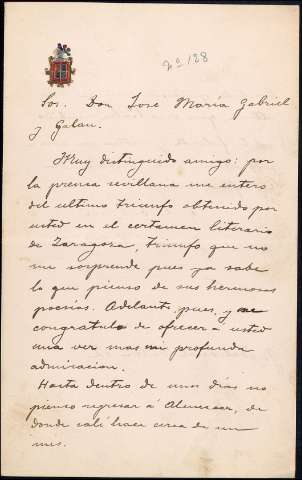 Nº 128
Sor. Don José María Gabriel
y Galan.
Muy distinguido amigo: por
la prensa sevillana me entero
del ultimo triunfo obtenido por
usted en el certamen literario
de Zaragoza, triunfo que no
me sorprende pues ya sabe
lo que pienso de sus hermosas
poesías. Adelante, pues, y me
congratulo de ofrecer á usted
una vez mas mi profunda
admiracion.
Hasta dentro de unos dias no
pienso regresar á, de
donde salí hace cerca de un
mes.